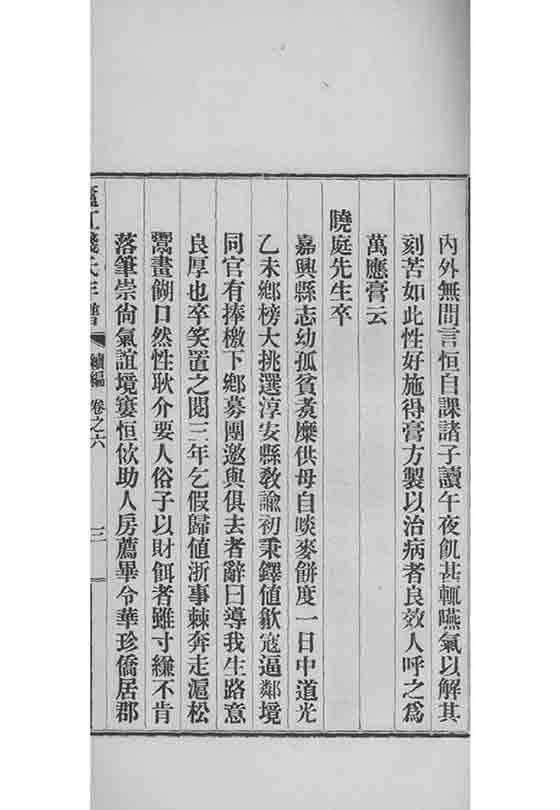 內外無間言恒自課諸子讀午夜飢甚輒嚥氣以解其
刻苦如此性好施得膏方製以治病者良效人呼之爲
萬應膏云
曉庭先生卒
嘉興縣志幼孤貧煑糜供母自啖麥餅度一日中道光
乙未鄉榜大挑選淳安縣敎諭初秉鐸値歙寇逼鄰境
同官有捧檄下鄉募團邀與俱去者辭曰導我生路意
良厚也卒笑置之閱三年乞假歸値浙事棘奔走滬松
鬻畫餬口然性耿介要人俗子以財餌者雖寸縑不肯
落筆崇尙氣誼境窶恒佽助人房薦畢令華珍僑居郡
廬江錢氏年譜
續編
卷之六
三